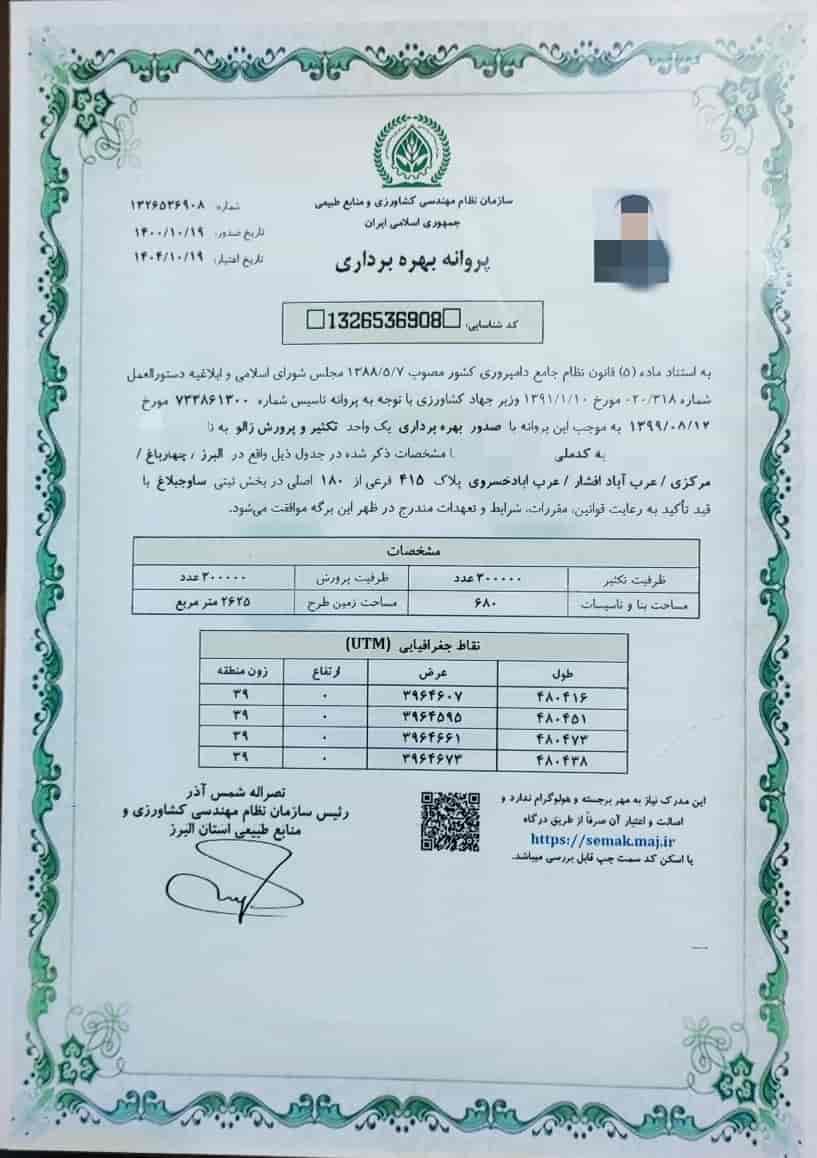 سازمان نظام مهندسی کشاورزی و منابع طبیعی
جمهوری اسلامی ایران
پروانه بهره برداری
شماره ۱۳۲۶۵۳۶۹۰۸
تاریخ صدور: ۱۴۰۰/۱۰/۱۹
تاریخ اعتبار: ۱۴۰۴/۱۰/۱۹
کد شناسایی: 1326536908
به استناد ماده (۵) قانون نظام جامع دامپروری کشور مصوب ۱۳۸۸/۵/۷ مجلس شورای اسلامی و ابلاغیه دستورالعمل
شماره ۰۲۰/۳۱۸ مورخ ۱۳۹۱/۱/۱۰ وزیر جهاد کشاورزی با توجه به پروانه تاسیس شماره ۷۳۳۸۶۱۳۰۰ مورخ
۱۳۹۹/۰۸/۱۲ به موجب این پروانه با صدور بهره برداری یک واحد تکثیر و پرورش زالو به نا
به کدملی با مشخصات ذکر شده در جدول ذیل واقع در البرز / چهارباغ /
مرکزی / عرب آباد افشار / عرب ابادخسروی پلاک ۴۱۵ فرعی از ۱۸۰ اصلی در بخش ثبتی ساوجبلاغ با
قید تأکید به رعایت قوانین، مقررات، شرایط و تعهدات مندرج در ظهر این برگه موافقت می‌شود.
مشخصات
ظرفیت تکثیر ۲۰۰۰۰۰ عدد ظرفیت پرورش ۲۰۰۰۰۰ عدد
مساحت بنا و تاسیسات ۶۸۰ مساحت زمین طرح ۲۶۲۵ متر مربع
نقاط جغرافیایی (UTM)
طول عرض ارتفاع زون منطقه
۴۸۰۴۱۶ ۳۹۶۴۶۰۷ ۰ ۳۹
۴۸۰۴۵۱ ۳۹۶۴۵۹۵ ۰ ۳۹
۴۸۰۴۷۳ ۳۹۶۴۶۶۱ ۰ ۳۹
۴۸۰۴۳۸ ۳۹۶۴۶۷۳ ۰ ۳۹
این مدرک نیاز به مهر برجسته و هولوگرام ندارد و
اصالت و اعتبار آن صرفاً از طریق درگاه
https://semak.maj.ir
یا اسکن کد سمت چپ قابل بررسی میباشد.
نصراله شمس آذر
رئیس سازمان نظام مهندسی کشاورزی و
منابع طبیعی استان البرز